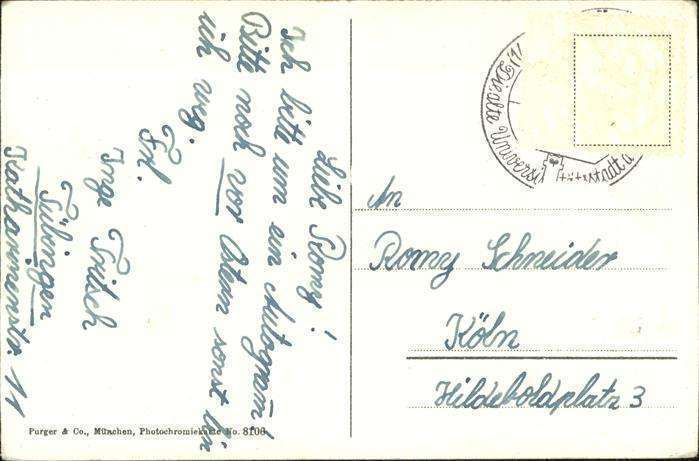 Liebe Romy!
Ich bitte um ein Autogram!
Bitte noch vor Ostern sonst bin
ich weg.
Frl.
Inge Fritsch
Tübingen
Katharinenstr. 11
Die alte Universitätsstadt a
An
Romy Schneider
Köln
Hildeboldplatz 3
Purger & Co., München, Photochromiekarte No. 8106